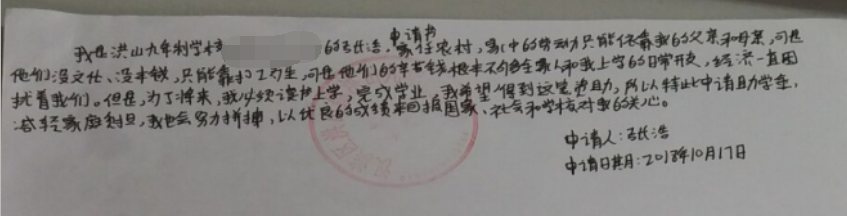 申请书
我是洪山九年制学校 的张浩，家住农村，家中的劳动只能依靠我的父亲和母亲，可是
他们没文化、没本钱，只能靠打工为生，可是他们的辛苦钱根本不够全家人和我上学的日常开支，经济一直困
扰着我们。但是，为了将来，我必须读书上学，完成学业，我希望得到这笔资助，所以特此申请助学生，
减轻家庭负担，我也会努力拼搏，以优良的成绩来回报国家、社会和学校对我的关心。
申请人：张浩
申请日期：2018年10月17日